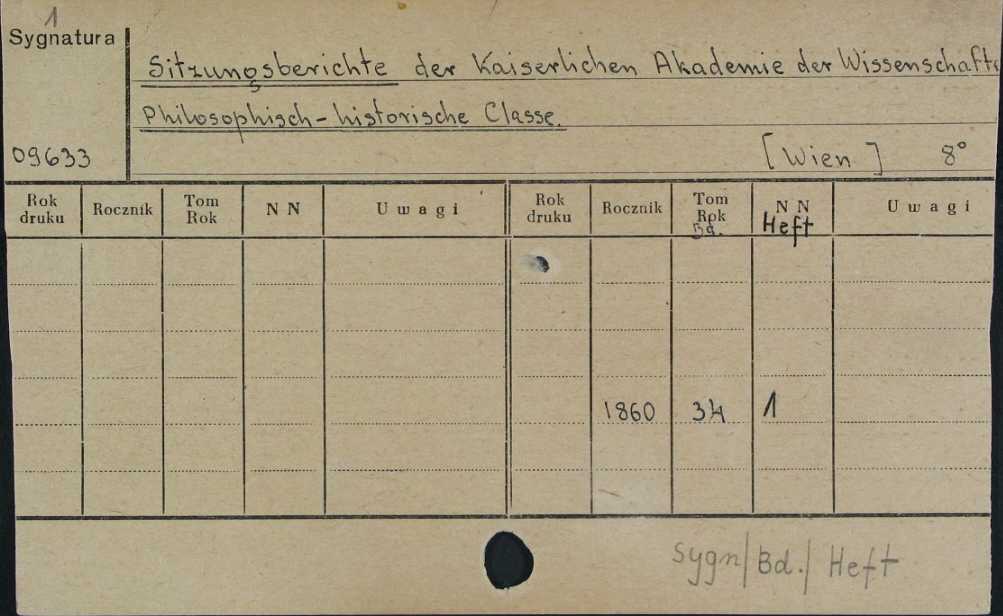 1
Sygnatura
Sitzungsberichte der Kaiserlichen Akademie der Wissenschaft
Philosophisch-historische Classe.
09633 [Wien] 8°
Rok druku Rocznik Tom Rok N N Uwagi Rok druku Rocznik Tom Rok Bd. N N Heft Uwagi
1860 34 1
Sygn/Bd./Heft